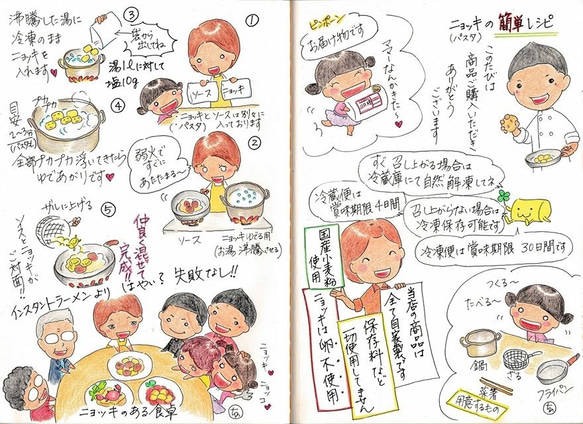 ニョキの簡単レシピ
(パスタ)
このたびは
商品ご購入いただき
ありがとう
ございます
ピンポーン
お届け物です
ママーなんかきた〜♥
すぐ召し上がる場合は
冷蔵庫にて自然解凍してネ
召し上がらない場合は
冷凍保存可能です
冷凍便は賞味期限 30日間です
冷蔵便は
賞味期限4日間
国産小麦粉
使用
当店の商品は
全て自家製です
保存料など
一切使用してません
ニョッキは卵不使用
つくる〜
たべる〜
鍋
ざる
フライパン
菜箸
用意するもの
①
ソース
ニョッキ
ニョッキとソースは別々に
(パスタ)
入っております
②
弱火で
すぐに
あたたまる〜
ソース
ニョッキゆでる用
(お湯沸騰させる)
③
沸騰した湯に
冷凍のまま
ニョッキを
入れます♥
袋から
出してネ
湯1ℓに対して
塩10g
④
プカプカ
目安
2〜3分
全部プカプカ浮いてきたら
ゆであがりです♥
⑤
ザルに上げる
ソースとニョッキが
ご対面!!
仲良く混ぜて
完成!!
はやい?失敗なし!!
インスタントラーメンより
ニョッキ♥
ニョッコ♥
ニョッキのある食卓